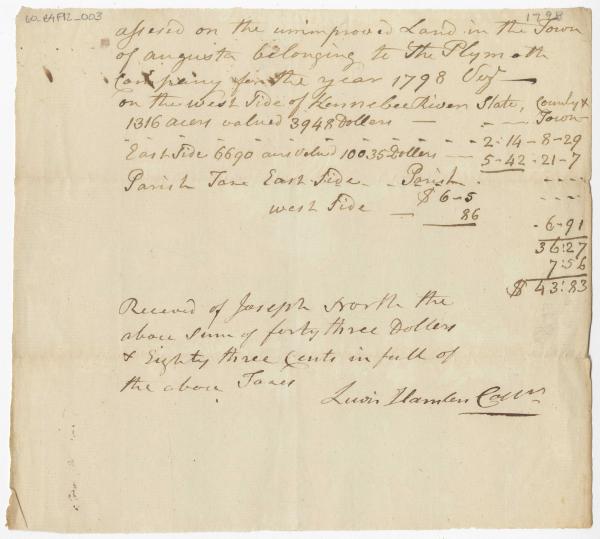 60.B4F12_003
1798
assesed on the unimproved Land in the Town
of augusta belonging to The Plymoth
Company for the year 1798 Viz
on the west Side of Kennebec River State, County &
1316 acers valued 3948 Dollars — Town
2:14-8-29
East Side 6690 acers valued 10035 Dollars — 5-42-21-7
Parish Taxe East Side - Parish
$ 6-5
west Side — 86
-6-91
36:27
7:56
$ 43:83
Received of Joseph North the
above Sum of forty three Dollars
& Eighty three Cents in full of
the above Taxes
Lewis Hamlen